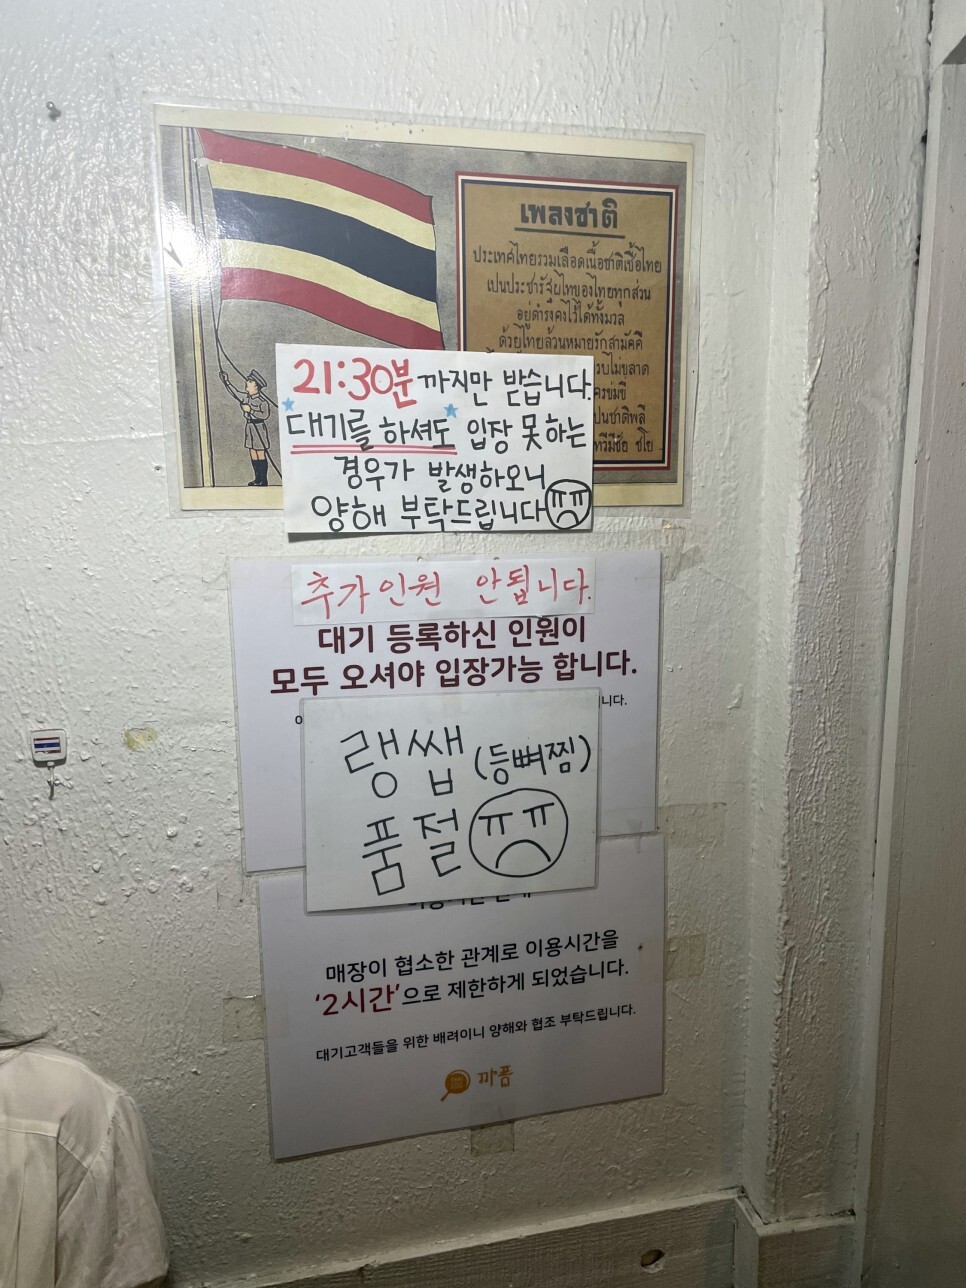 เพลงชาติ
ประเทศไทยรวมเลือดเนื้อชาติเชื้อไทย
เปนประชารัฐไผทของไทยทุกส่วน
อยู่ดำรงคงไว้ได้ทั้งมวล
ด้วยไทยล้วนหมายรักสามัคคี
บไม่ขลาด
ครข่มขี่
ปนชาติพลี
ทวีมีชัย ชโย
21:30분 까지만 받습니다.
대기를 하셔도 입장 못하는
경우가 발생하오니
양해 부탁드립니다 ㅠㅠ
추가인원 안됩니다.
대기 등록하신 인원이
모두 오셔야 입장가능 합니다.
니다.
랭쌥 (등뼈찜)
품절 ㅠㅠ
매장이 협소한 관계로 이용시간을
‘2시간’으로 제한하게 되었습니다.
대기고객들을 위한 배려이니 양해와 협조 부탁드립니다.
까폼